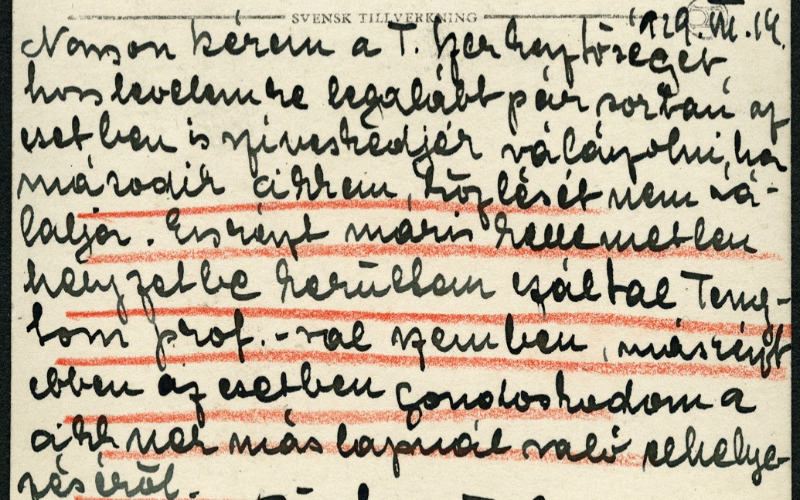 SVENSK TILLVERKNING
929. VII. 14.
Nagyon kérem a T. Szerkesztőséget
hogy levelemre legalább pár sorban az
esetben is sziveskedjék válaszolni, ha
második cikkem közlését nem vá-
lalja. Egyrészt máris kellemetlen
helyzetbe kerültem ezáltal Teng-
bom prof.-ral szemben, másrészt
ebben az esetben gondoskodom a
cikknek más lapnál való elhelye-
zéséről.